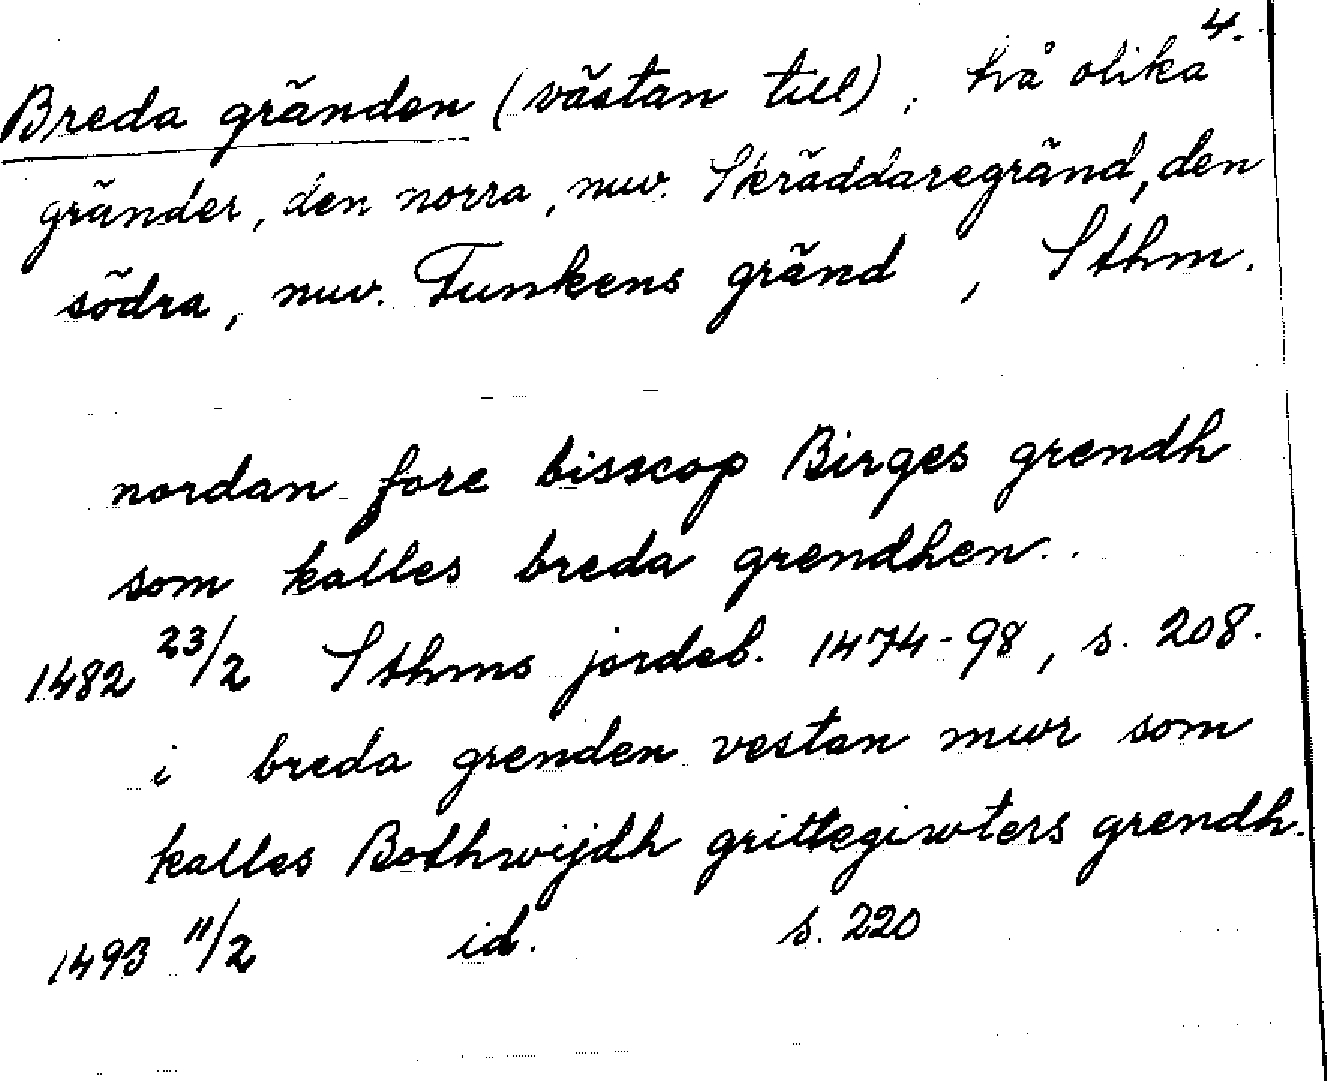 4.
Breda gränden (västan till), två olika
gränder, den norra, nuv. Skräddaregränd, den
södra, nuv. Funkens gränd, Sthm.
nordan fore bisscop Birges grendh
som kalles breda grendhen.
1482 23/2 Sthms jordeb. 1474-98, s. 208.
i breda grenden vestan mwr som
kalles Bothwijdh grittegiwters grendh.
1493 11/2 id. s. 220